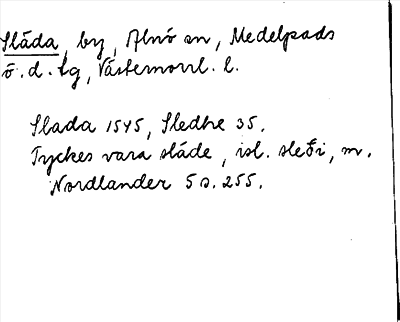 Slåda, by, Alnö sn, Medelpads
ö. d. tg, Västernorrl. l.
Slada 1545, Sledhe 35.
Tyckes vara släde, isl. sleði, m.
Nordlander 5 s. 255.